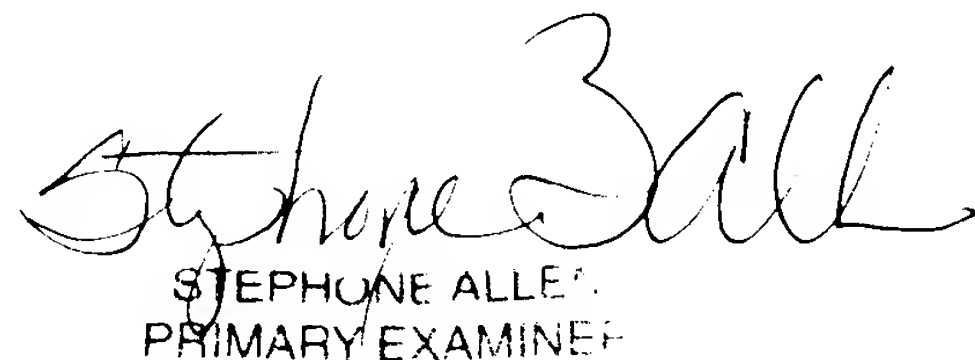 Stephone B All
STEPHONE ALLEN
PRIMARY EXAMINER